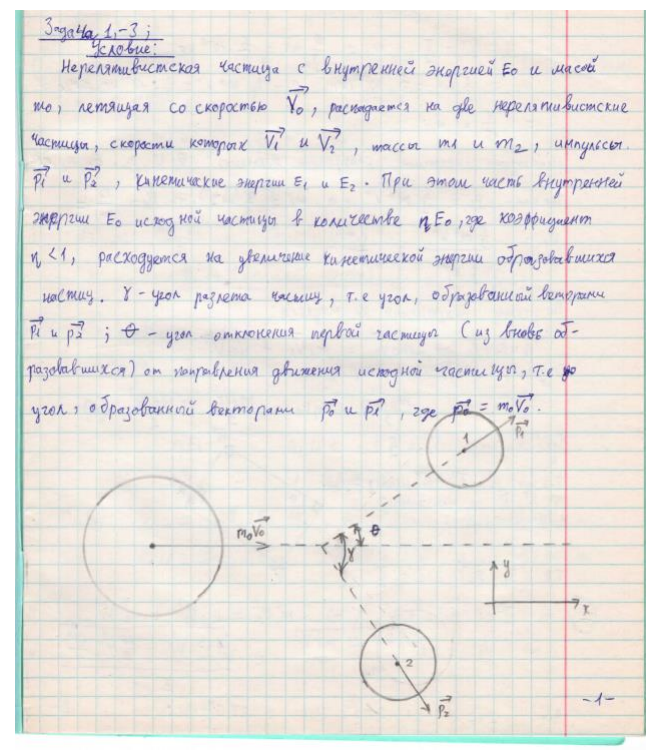 Задача 1.-3;
Условие:
Нерелятивистская частица с внутренней энергией E₀ и массой
m₀, летящая со скоростью V₀, распадается на две нерелятивистские
частицы, скорости которых V₁ и V₂, массы m₁ и m₂, импульсы
p₁ и p₂, кинетические энергии E₁ и E₂. При этом часть внутренней
энергии E₀ исходной частицы в количестве ηE₀, где коэффициент
η < 1, расходуется на увеличение кинетической энергии образовавшихся
частиц. γ - угол разлета частиц, т.е угол, образованный векторами
p₁ и p₂; θ - угол отклонения первой частицы (из вновь об-
разовавшихся) от направления движения исходной частицы, т.е
угол, образованный векторами p₀ и p₁, где p₀ = m₀V₀.
1
p₁
m₀V₀
θ
γ
y
x
2
p₂
-1-